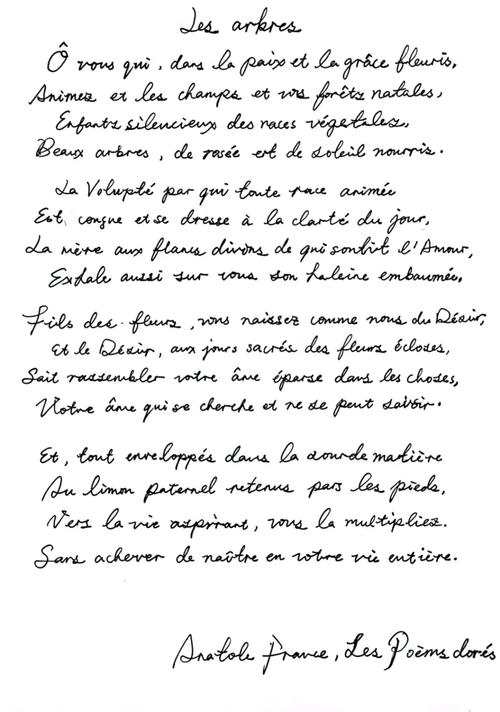 Les arbres
Ô vous qui, dans la paix et la grâce fleuris,
Animez et les champs et vos forêts natales,
Enfants silencieux des races végétales,
Beaux arbres, de rosée et de soleil nourris.
La Volupté par qui toute race animée
Est conçue et se dresse à la clarté du jour,
La mère aux flancs divins de qui sortit l'Amour,
Exhale aussi sur vous son haleine embaumée.
Fils des fleurs, vous naissez comme nous du Désir,
Et le Désir, aux jours sacrés des fleurs écloses,
Sait rassembler votre âme éparse dans les choses,
Votre âme qui se cherche et ne se peut saisir.
Et, tout enveloppés dans la sourde matière
Au limon paternel retenus pars les pieds,
Vers la vie aspirant, vous la multipliez.
Sans achever de naître en votre vie entière.
Anatole France, Les Poèms dorés